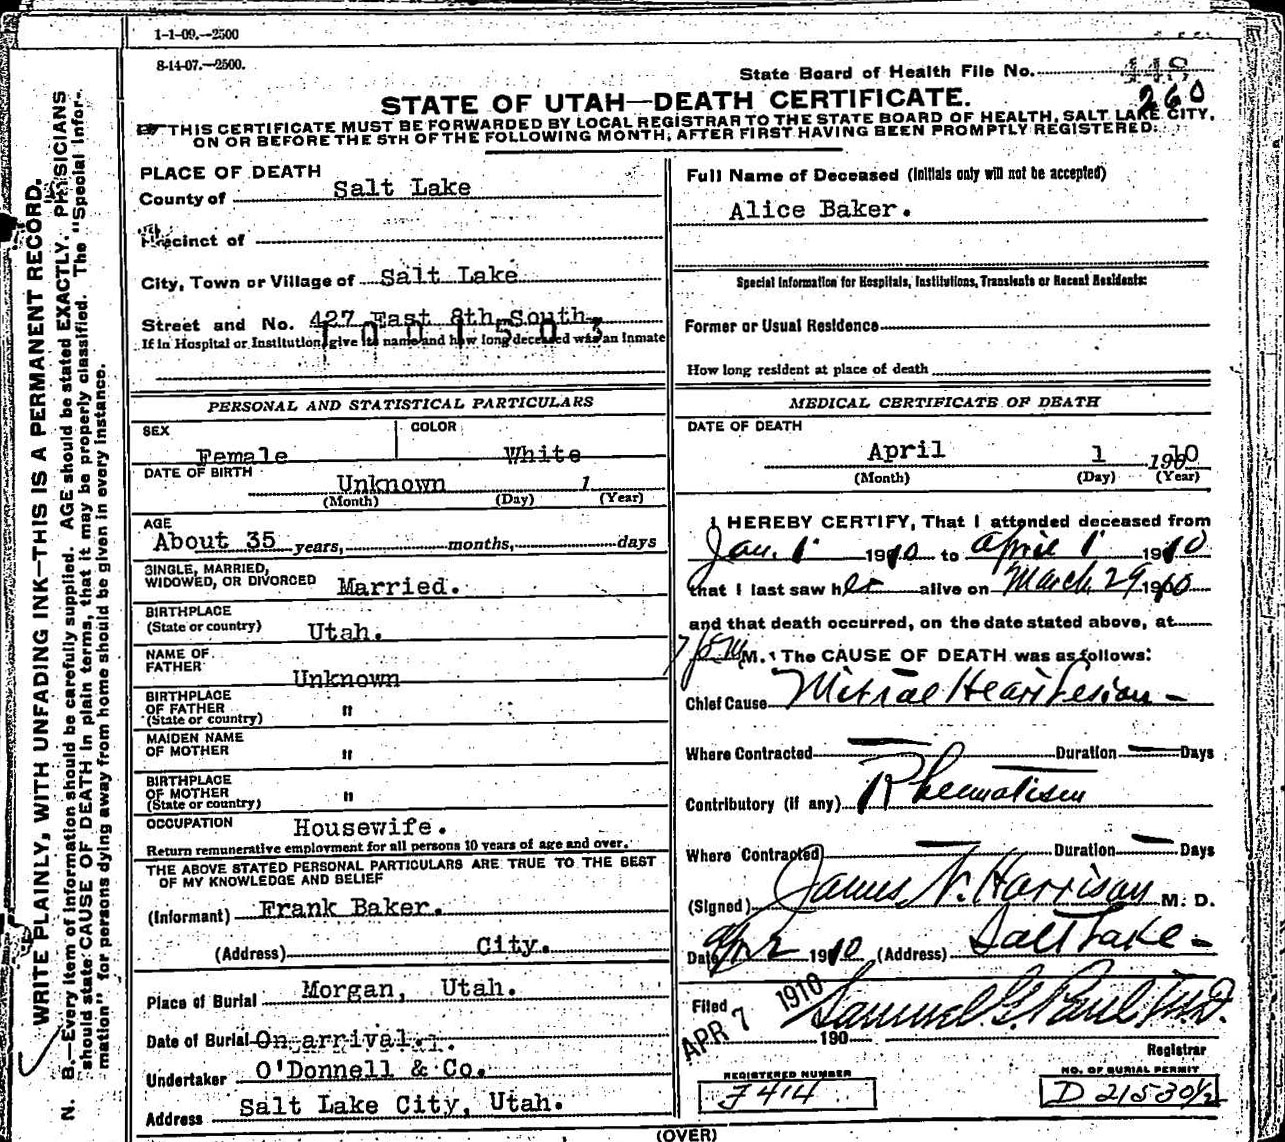 1-1-09.—2500
8-14-07.—2500.
State Board of Health File No. 448
260
STATE OF UTAH—DEATH CERTIFICATE.
THIS CERTIFICATE MUST BE FORWARDED BY LOCAL REGISTRAR TO THE STATE BOARD OF HEALTH, SALT LAKE CITY,
ON OR BEFORE THE 5TH OF THE FOLLOWING MONTH, AFTER FIRST HAVING BEEN PROMPTLY REGISTERED.
WRITE PLAINLY, WITH UNFADING INK—THIS IS A PERMANENT RECORD.
N. B.—Every item of information should be carefully supplied. AGE should be stated EXACTLY. PHYSICIANS
should state CAUSE OF DEATH in plain terms, that it may be properly classified. The "Special Infor-
mation" for persons dying away from home should be given in every instance.
PLACE OF DEATH
County of Salt Lake
Precinct of
City, Town or Village of Salt Lake
Street and No. 427 East 8th South
1001503
If in Hospital or Institution, give its name and how long deceased was an Inmate
PERSONAL AND STATISTICAL PARTICULARS
SEX Female
COLOR White
DATE OF BIRTH Unknown 1
(Month) (Day) (Year)
AGE
About 35 years, months, days
SINGLE, MARRIED,
WIDOWED, OR DIVORCED Married.
BIRTHPLACE
(State or country) Utah.
NAME OF
FATHER Unknown
BIRTHPLACE
OF FATHER "
(State or country)
MAIDEN NAME
OF MOTHER "
BIRTHPLACE
OF MOTHER "
(State or country)
OCCUPATION Housewife.
Return remunerative employment for all persons 10 years of age and over.
THE ABOVE STATED PERSONAL PARTICULARS ARE TRUE TO THE BEST
OF MY KNOWLEDGE AND BELIEF
(Informant) Frank Baker.
(Address) City.
Place of Burial Morgan, Utah.
Date of Burial On arrival.
Undertaker O'Donnell & Co.
Address Salt Lake City, Utah.
Full Name of Deceased (Initials only will not be accepted)
Alice Baker.
Special Information for Hospitals, Institutions, Transients or Recent Residents:
Former or Usual Residence
How long resident at place of death
MEDICAL CERTIFICATE OF DEATH
DATE OF DEATH
April 1 1910
(Month) (Day) (Year)
I HEREBY CERTIFY, That I attended deceased from
Jan. 1 1910 to April 1 1910
that I last saw her alive on March 29 1910
and that death occurred, on the date stated above, at
M. The CAUSE OF DEATH was as follows:
Chief Cause Mitral Heart Lesion -
Where Contracted — Duration — Days
Contributory (if any) Rheumatism
Where Contracted — Duration — Days
(Signed) James N. Harrison M. D.
Date Apr 2 1910 (Address) Salt Lake -
Filed APR 7 1910 190 Samuel G. Paul M.D.
Registrar
REGISTERED NUMBER
F414
NO. OF BURIAL PERMIT
D 21530½
(OVER)